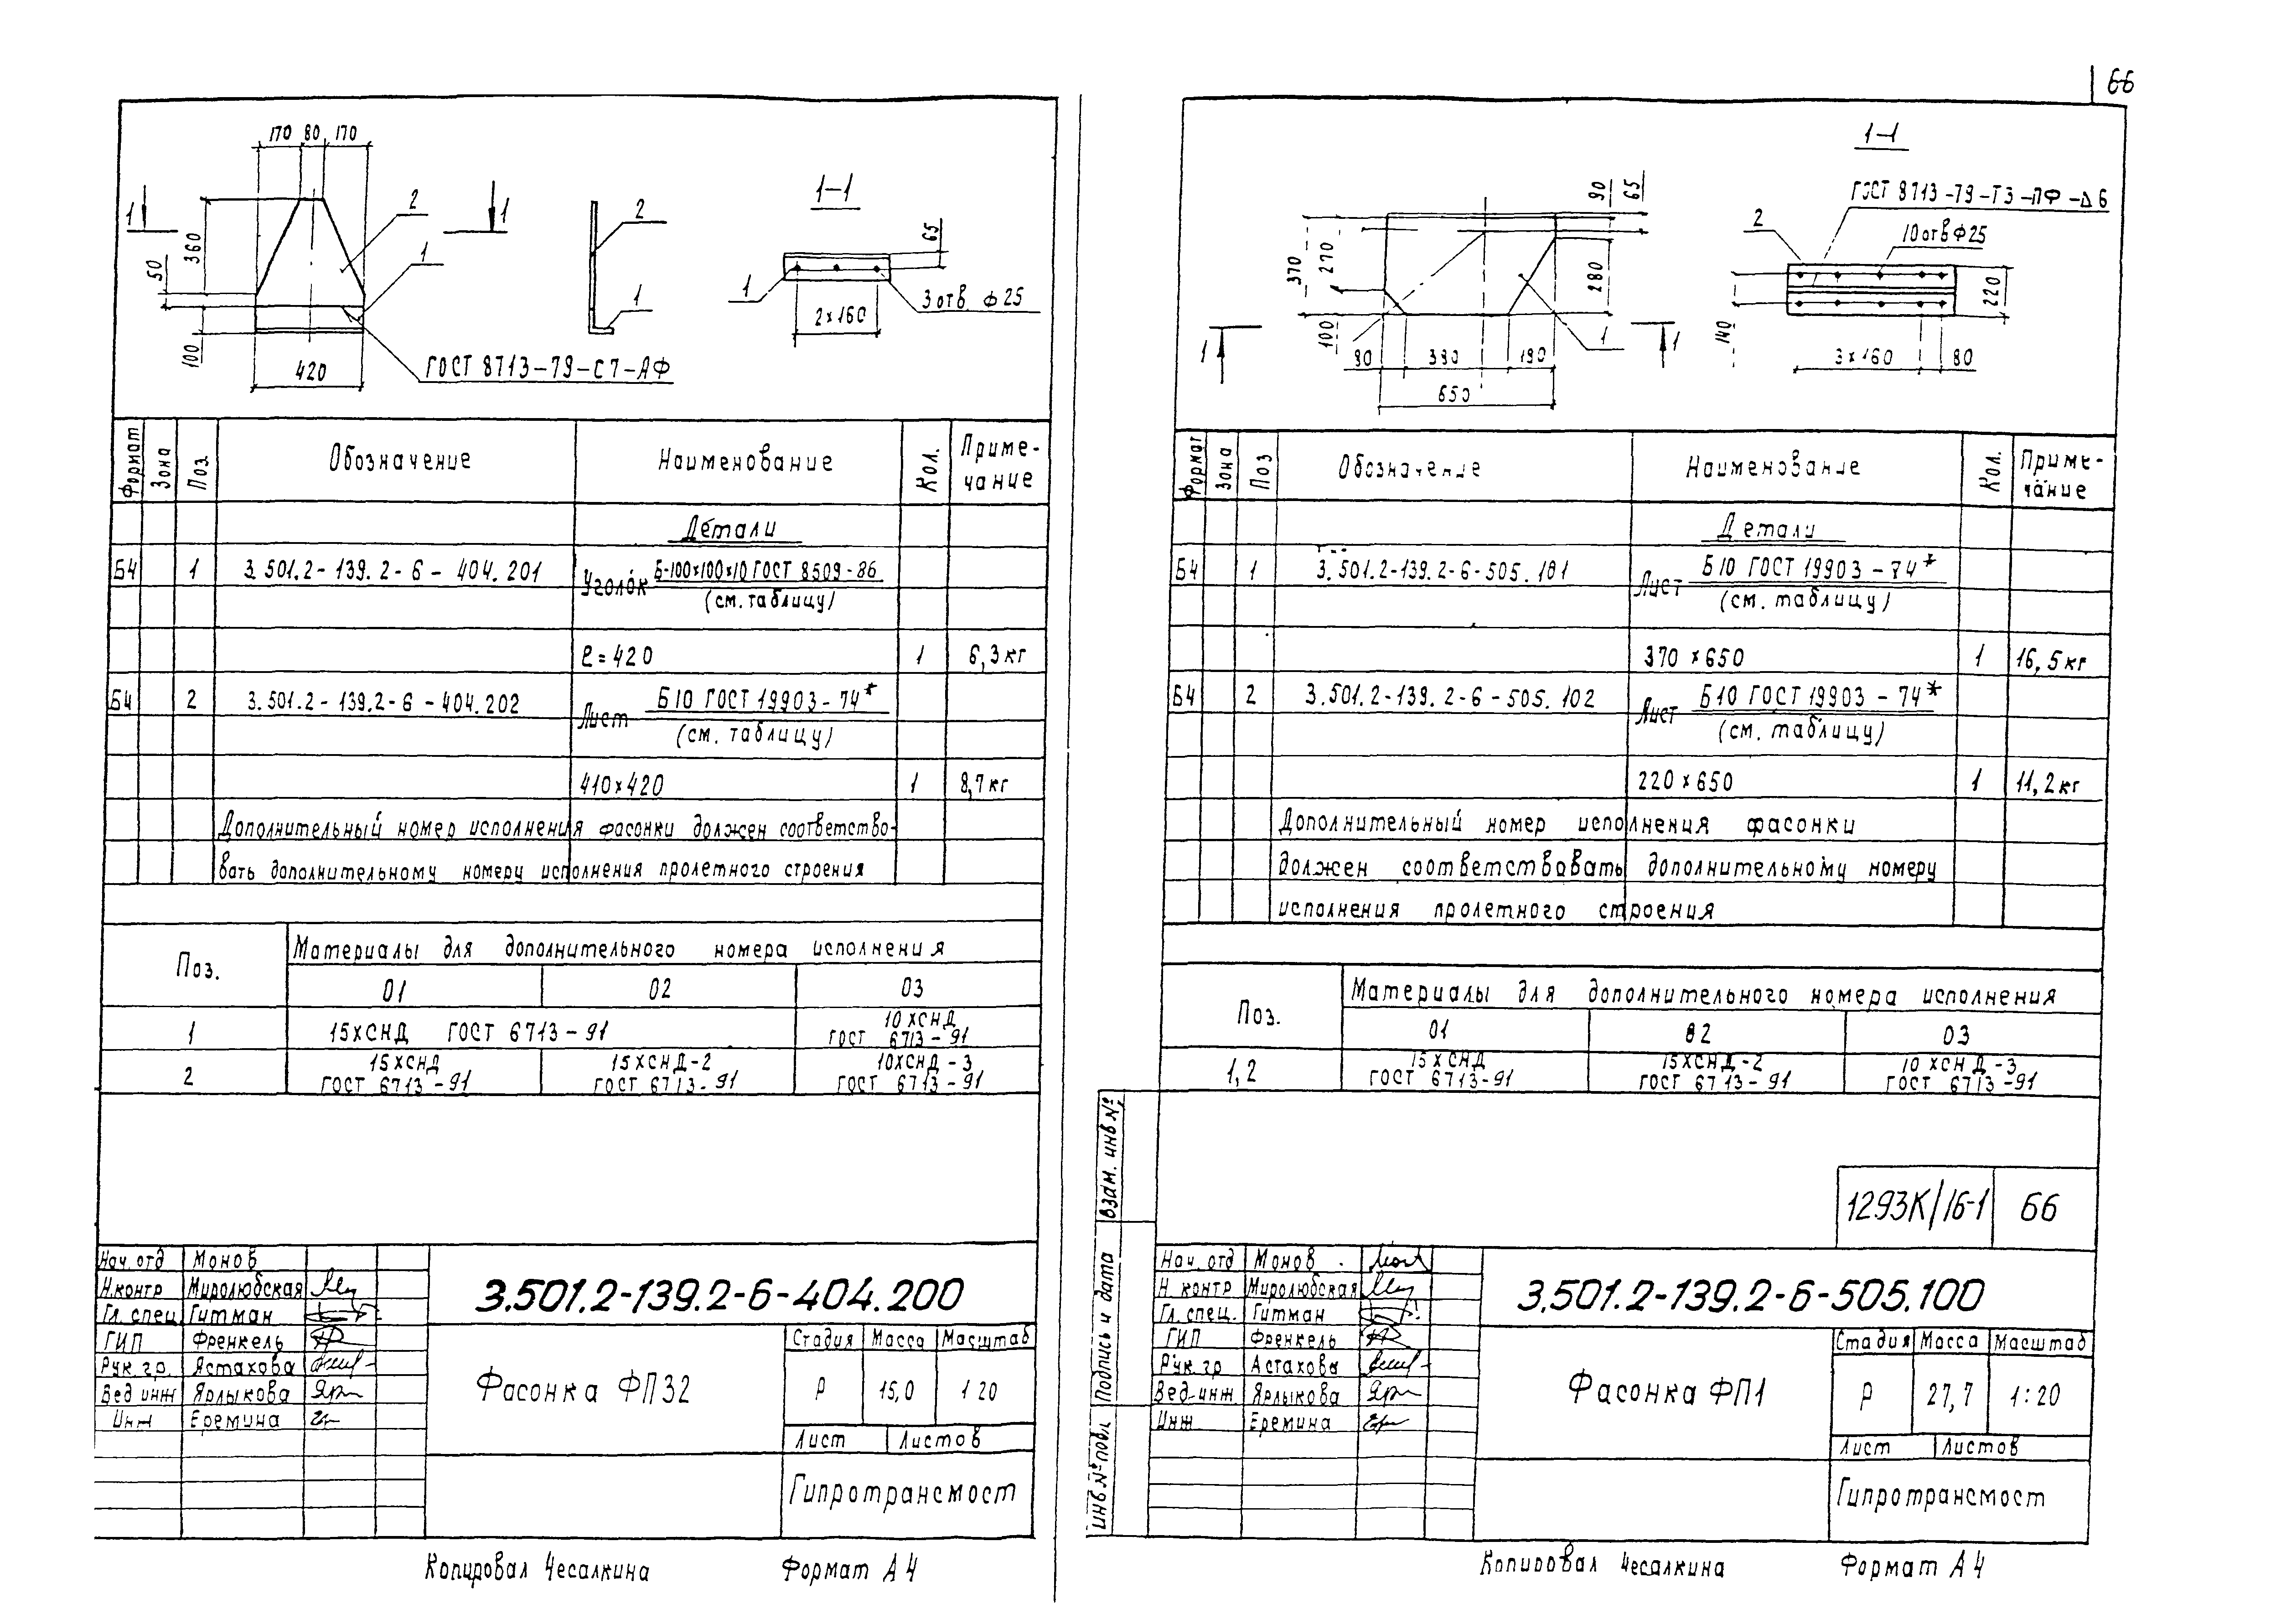 66
170 80 170
1
1
2
1
360
50
100
420
ГОСТ 8713-79-С7-АФ
2
1
1-1
65
1
3 отв. ф 25
2×160
Формат
Зона
Поз.
Обозначение
Наименование
Кол.
Приме-
чание
Детали
Б4 1 3.501.2-139.2-6-404.201 Уголок Б-100×100×10 ГОСТ 8509-86
(см. таблицу)
ℓ=420 1 6,3кг
Б4 2 3.501.2-139.2-6-404.202 Лист Б10 ГОСТ 19903-74*
(см. таблицу)
410×420 1 8,7кг
Дополнительный номер исполнения фасонки должен соответство-
вать дополнительному номеру исполнения пролетного строения
Поз.
Материалы для дополнительного номера исполнения
01 02 03
1 15ХСНД ГОСТ 6713-91 10ХСНД
ГОСТ 6713-91
2 15ХСНД 15ХСНД-2 10ХСНД-3
ГОСТ 6713-91 ГОСТ 6713-91 ГОСТ 6713-91
Нач. отд Монов
Н.контр Миролюбская
Гл. спец. Гитман
ГИП Френкель
Рук. гр. Астахова
Вед инж Ярлыкова
Инж Еремина
3.501.2-139.2-6-404.200
Фасонка ФП32
Стадия Масса Масштаб
Р 15,0 1 20
Лист Листов
Гипротрансмост
Копировал Чесалкина Формат А4
1-1
90
65
370
270
100
280
90 380 190
650
1
1
1
ГОСТ 8713-79-Т3-ПФ-Δ6
2
10отв ф25
220
140
3×160 80
Формат
Зона
Поз
Обозначение
Наименование
Кол.
Приме-
чание
Детали
Б4 1 3.501.2-139.2-6-505.101 Лист Б10 ГОСТ 19903-74*
(см. таблицу)
370×650 1 16,5кг
Б4 2 3.501.2-139.2-6-505.102 Лист Б10 ГОСТ 19903-74*
(см. таблицу)
220×650 1 11,2кг
Дополнительный номер исполнения фасонки
должен соответствовать дополнительному номеру
исполнения пролетного строения
Поз.
Материалы для дополнительного номера исполнения
01 02 03
1,2 15ХСНД 15ХСНД-2 10ХСНД-3
ГОСТ 6713-91 ГОСТ 6713-91 ГОСТ 6713-91
Взам. инв №
Подпись и дата
Инв. № подл.
1293К/16-1 66
Нач. отд Монов
Н контр Миролюбская
Гл. спец. Гитман
ГИП Френкель
Рук. гр Астахова
Вед-инж Ярлыкова
Инж Еремина
3.501.2-139.2-6-505.100
Фасонка ФП1
Стадия Масса Масштаб
Р 27,7 1:20
Лист Листов
Гипротрансмост
Копировал Чесалкина Формат А4